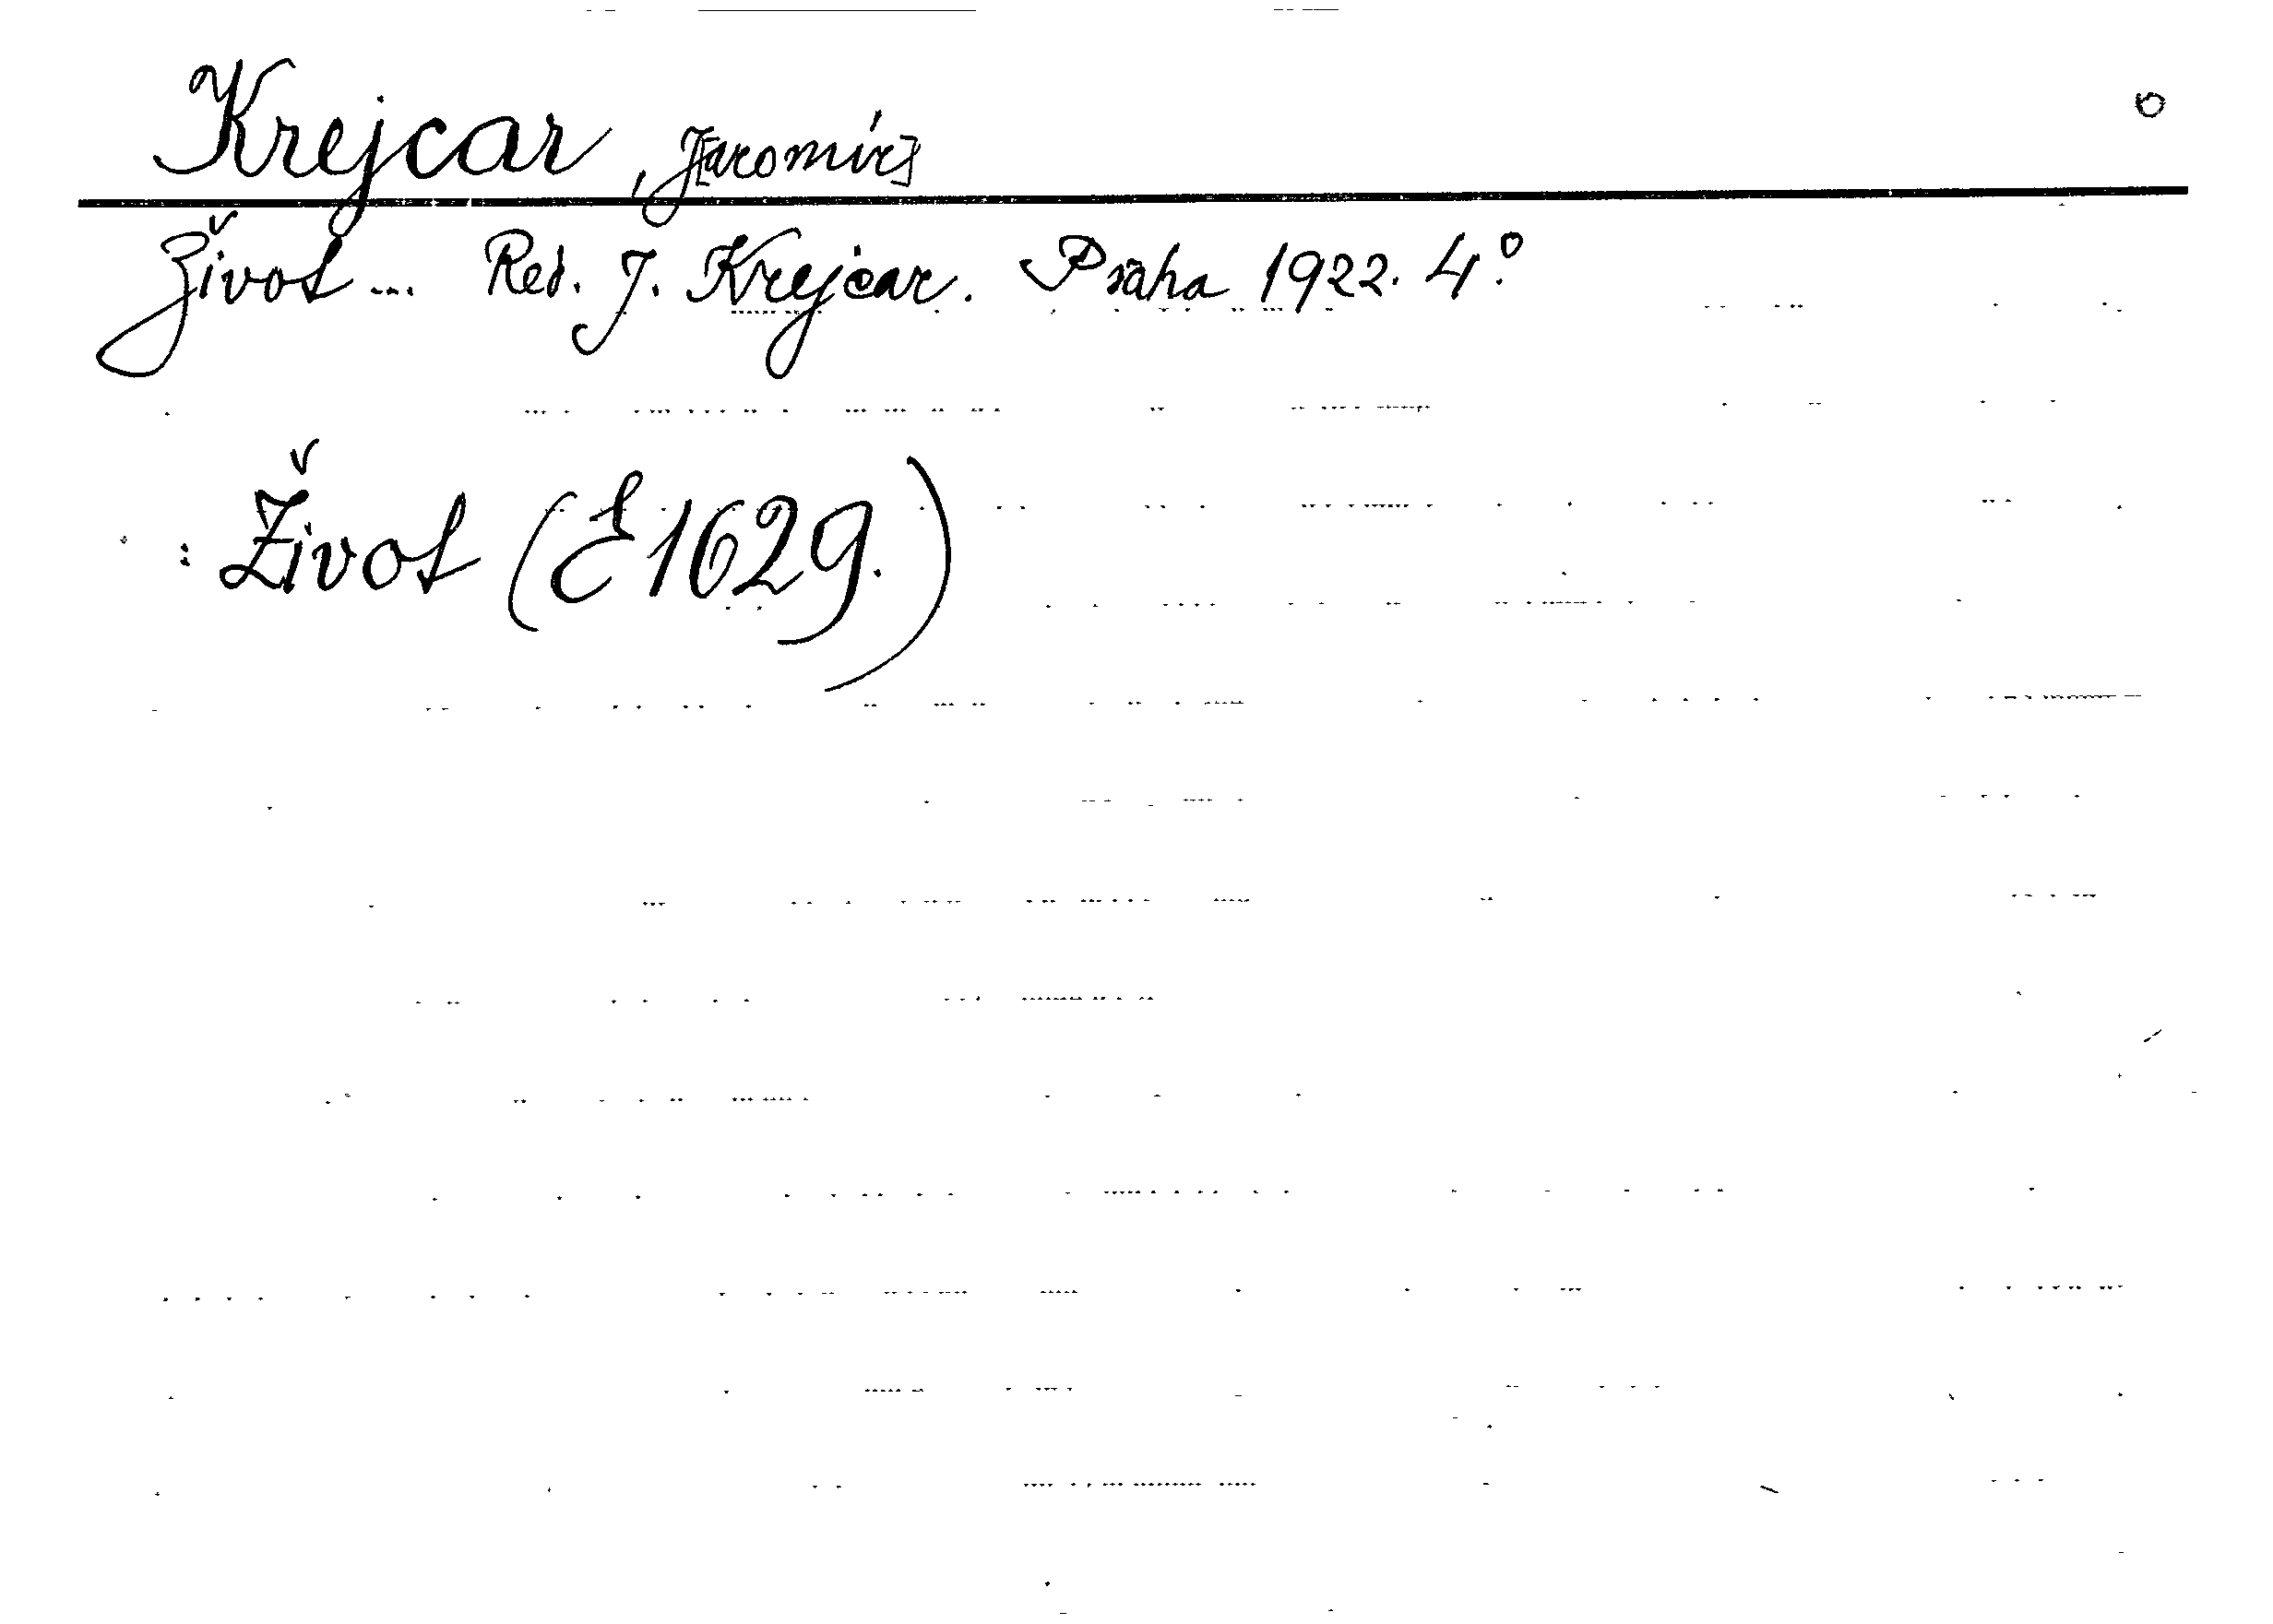 Krejcar, J[aromír]
Život... Red. J. Krejcar. Praha 1922. 4°.
: Život (E 1629.)